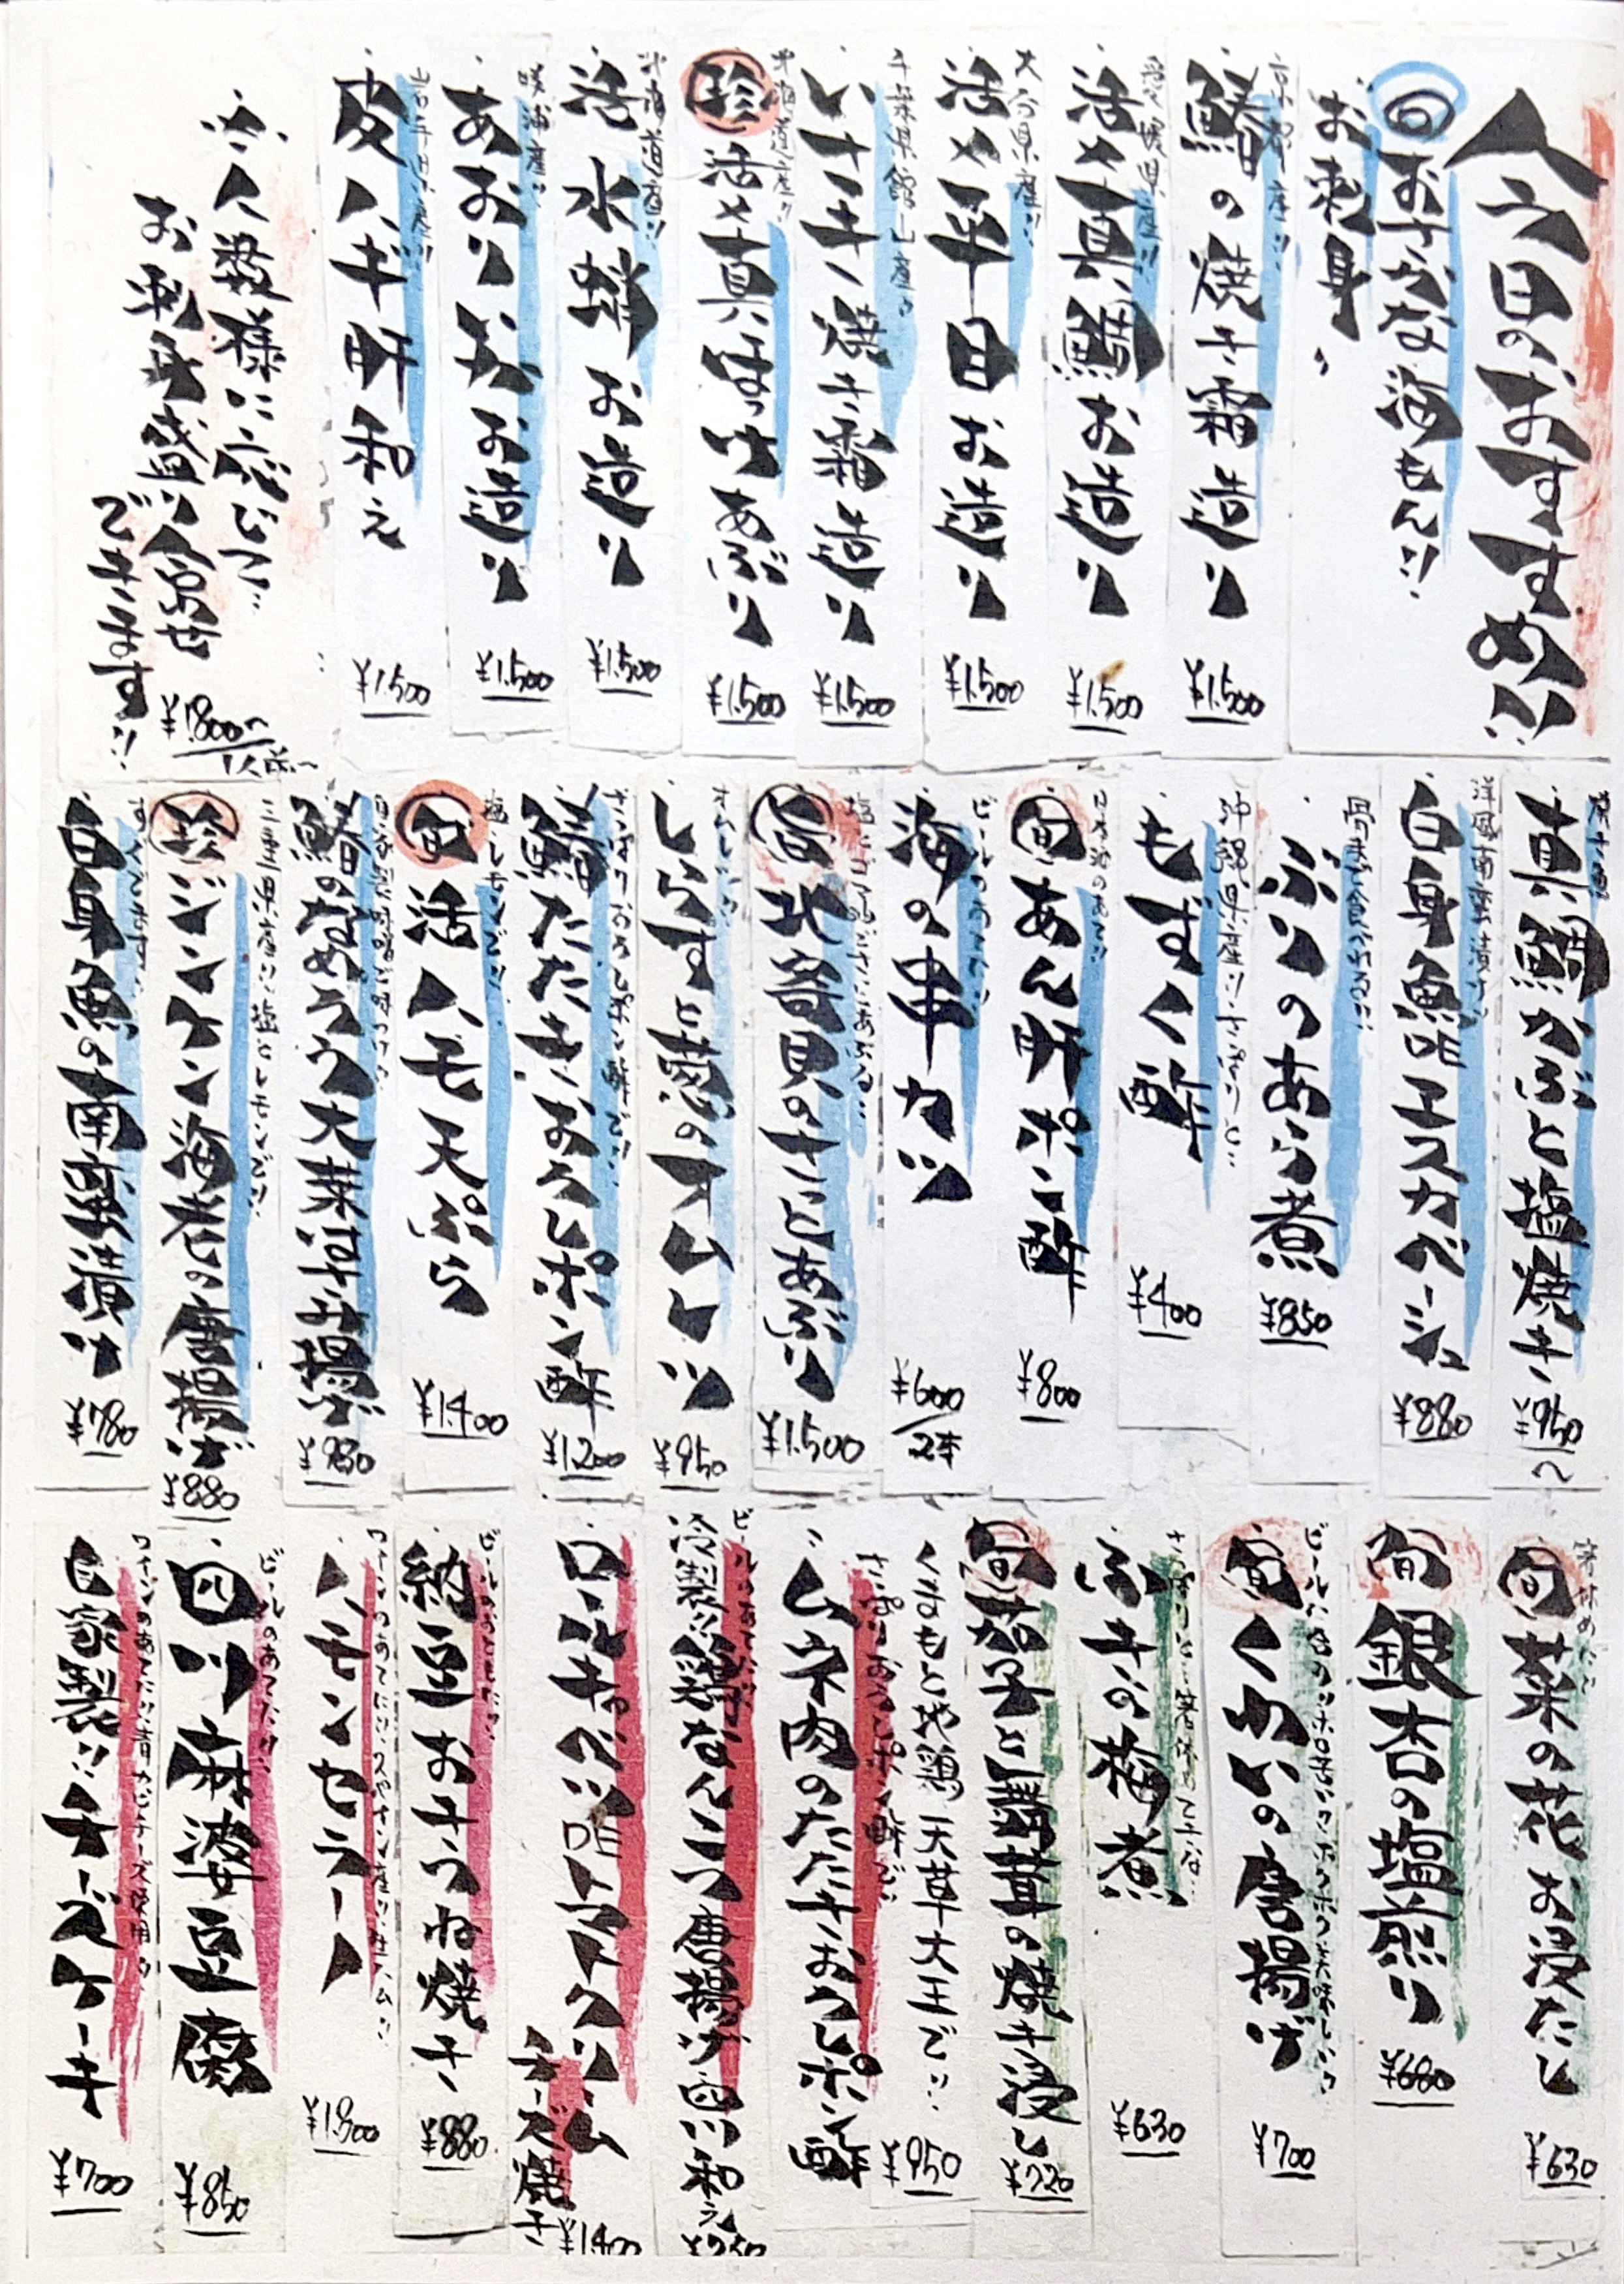 今日のおすすめ!!
旬おさかな海もん!!
お刺身
京都産!!
鰆の焼き霜造り
¥1.500
愛媛県産!!
活〆真鯛お造り
¥1.500
大分県産!!
活〆平目お造り
¥1.500
千葉県館山産!!
いさき焼き霜造り
¥1.500
北海道産!!
珍活〆真ほっけあぶり
¥1.500
北海道産!!
活水蛸お造り
¥1.500
あおりいかお造り
¥1.500
岩手県産!!
皮ハギ肝和え
¥1500
人数様に応じて…
お刺身盛り合わせ
できます!!
¥1.800〜
真鯛かぶと塩焼き
¥950〜
洋風南蛮漬け!!
白身魚のエスカベーシュ
¥880
骨まで食べれる!!
ぶりのあら煮
¥850
沖縄県産!!さっぱりと…
もずく酢
¥400
旬あん肝ポン酢
¥800
ビールのあてに!!
海の串カツ
¥600/2本
旬北寄貝のさっとあぶり
¥1.500
しらすと葱のオムレツ
¥950
さっぱりおろしポン酢で!!
鯖たたきおろしポン酢
¥1.200
塩、レモンで!!
旬活ハモ天ぷら
¥1.400
自家製味噌で味つけ!!
鰆のなめろう大葉はさみ揚げ
¥980
三重県産!!塩とレモンで!!
珍ジンケン海老の唐揚げ
¥880
すぐでます!!
白身魚の南蛮漬け
¥780
箸休めに!!
旬菜の花お浸だし
¥630
旬銀杏の塩煎り
¥680
旬くわいの唐揚げ
¥700
さっぱりと…箸休めてきな…
ふきの梅煮
¥630
旬茄子と舞茸の焼き浸し
¥720
くまもと地鶏 天草大王で!!
さっぱりおろしポン酢で!!
ムネ肉のたたきおろしポン酢
¥950
ビールのあてに!!
冷製!!鶏なんこつ唐揚げ四川和え
ロールキャベツのトマトクリームチーズ焼き
¥1400
ビールのおともに!!
納豆おきつね焼き
¥880
ハモンセラーノ
ビールのあてに!!
四川麻婆豆腐
¥850
ワインのあてに!!青カビチーズ使用!!
自家製!!チーズケーキ
¥700